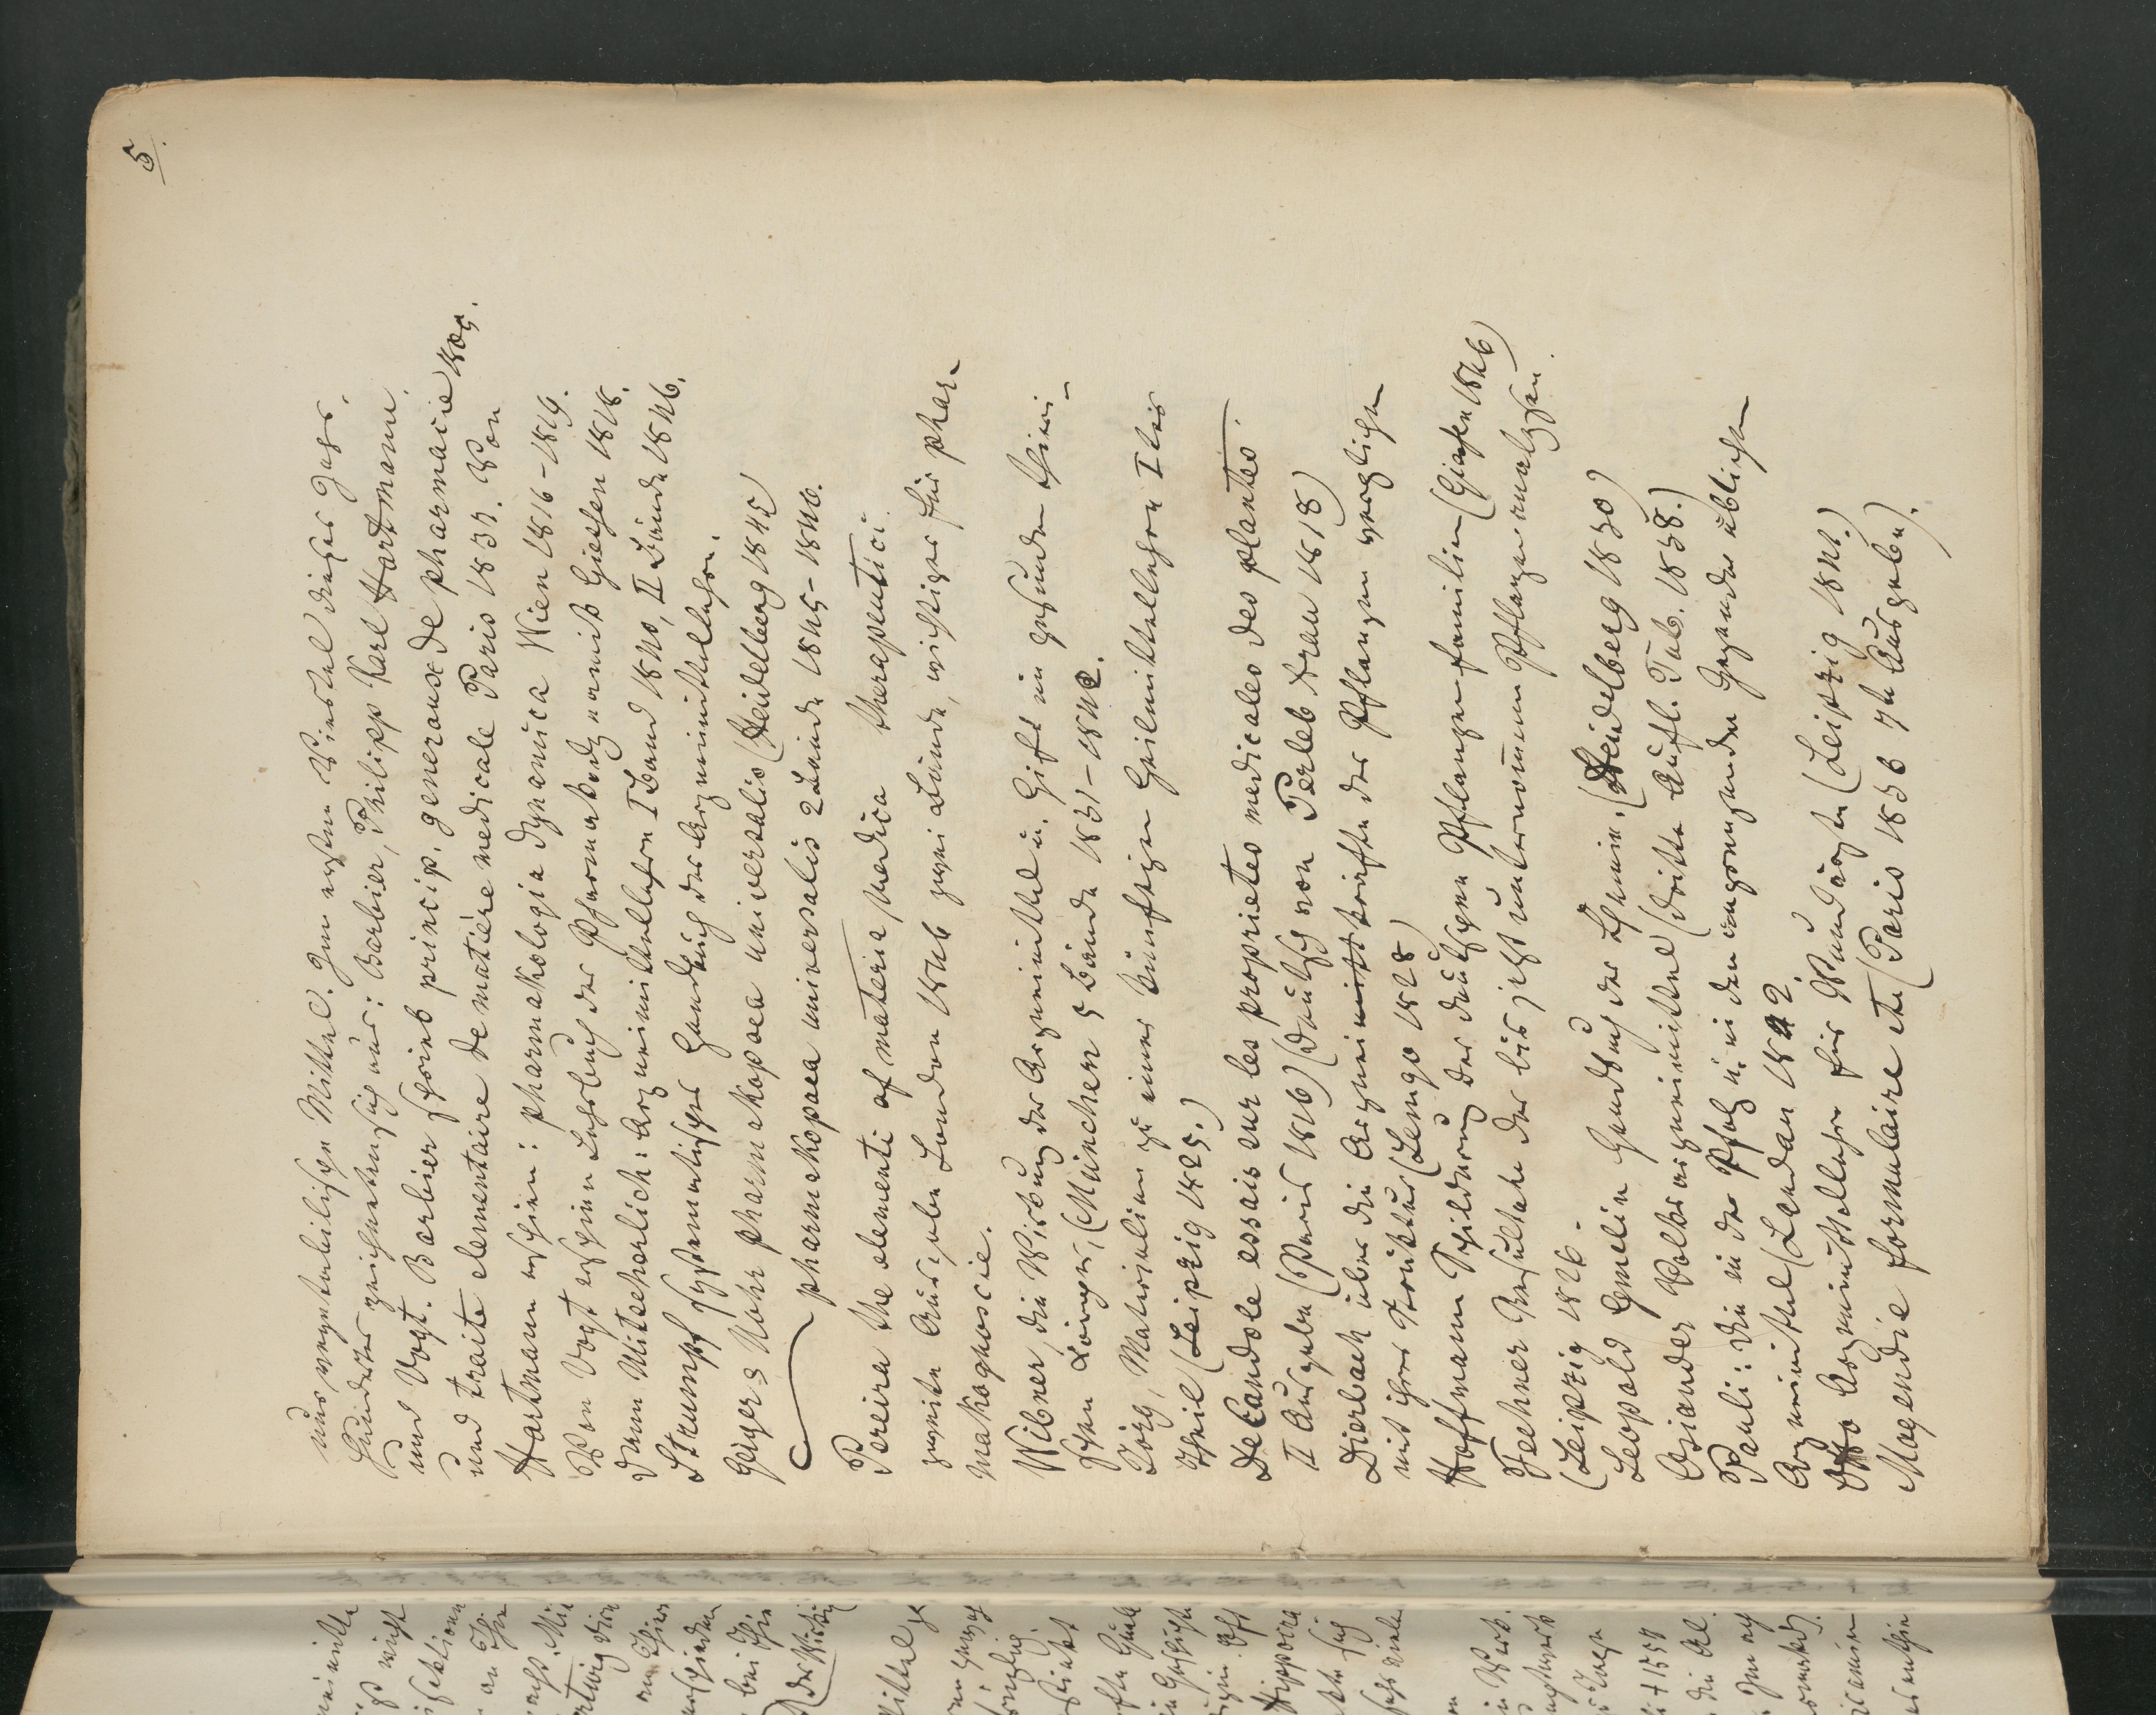 5.
nur vegetabilischen Mittel. Im ersten Viertel dieses Jahr-
hunderts zeichneten sich aus: Barbier, Philipp Karl Hartmann,
und Vogt. Barbier schrieb princip. generaux de pharmacie 1805.
und traite elementaire de matière medicale Paris 1837. Von
Hartmann erschien: pharmakologia dynamica Wien 1816-1819.
Von Vogt erschien Lehrbuch der Pharmakodynamik Giessen 1818.
dann Mitscherlich: Arzneimittellehre I Band 1840, II Bände 1846.
Strumpf systematisches Handbuch der Arzneimittellehre.
Geiger & Mohr pharmakopoea universalis (Heidelberg 1845)
pharmakopoea universalis 2 Bände 1845-1846.
Pereira the elementi of materia medica therapeutici.
zweite Ausgabe London 1846 zwei Bände, wichtiges für phar-
makognosie.
Wibner, die Wirkung der Arzneimittel u. Gift im gesunden thieri-
schen Körper, (München 5 Bände 1831-1842.
Jörg, Materialien zu einer künftigen Heilmittellehre Iter
Theil (Leipzig 1825.)
De Candole essais sur les proprietes medicales des plantes.
II Ausgabe (Paris 1816) (deutsch von Perleb Arau 1818)
Dierbach über die Arzneikräfte der Pflanzen verglichen
mit ihrer Struktur (Lemgo 1828)
Hoffmann Schilderung der deutschen Pflanzenfamilien (Giessen 1846)
Fechner Resultate der bis jetzt unternommenen Pflanzenanalysen.
(Leipzig 1826-
Leopold Gmelin Handbuch der Chemie. (Heidelberg 1830)
Osiander Volksarzneimittel (dritte Aufl. Tub. 1838.)
Pauli: die in der Pfalz u. in den angrenzenden Gegenden üblichen
Arzneimittel (Landau 1842.
Otto Arzneimittellehre für Wundärzte (Leipzig 1841.)
Magendie formulaire etc (Paris 1836 7te Ausgabe).